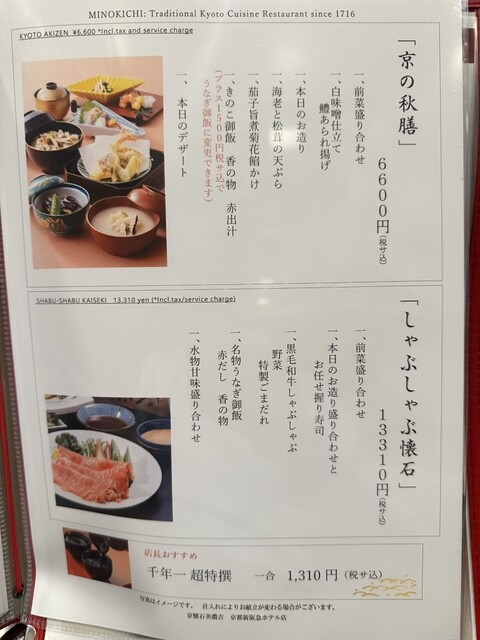 MINOKICHI: Traditional Kyoto Cuisine Restaurant since 1716
KYOTO AKIZEN ¥6,600 *Incl.tax and service charge
「京の秋膳」
6600円(税サ込)
一、前菜盛り合わせ
一、白味噌仕立て
鱧あられ揚げ
一、本日のお造り
一、海老と松茸の天ぷら
一、茄子旨煮菊花餡かけ
一、きのこ御飯 香の物 赤出汁
(プラス1500円税サ込で
うなぎ御飯に変更できます)
一、本日のデザート
SHABU-SHABU KAISEKI 13,310 yen (*Incl.tax/service charge)
「しゃぶしゃぶ懐石」
13310円(税サ込)
一、前菜盛り合わせ
一、本日のお造り盛り合わせと
お任せ握り寿司
一、黒毛和牛しゃぶしゃぶ
野菜
特製ごまだれ
一、名物うなぎ御飯
赤だし 香の物
一、水物甘味盛り合わせ
店長おすすめ
千年一 超特撰 一合 1,310円(税サ込)
写真はイメージです。 仕入れによりお献立が変わる場合がございます。
京懐石美濃吉 京都新阪急ホテル店